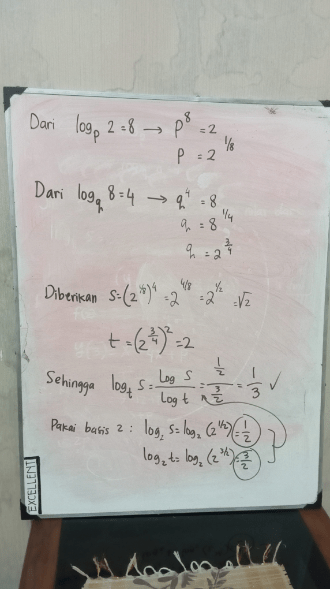 Dari log_p 2 = 8 → p^8 = 2
p = 2^{1/8}
Dari log_q 8 = 4 → q^4 = 8
q = 8^{1/4}
q = 2^{3/4}
Diberikan s = (2^{1/8})^4 = 2^{4/8} = 2^{1/2} = √2
t = (2^{3/4})^2 = 2
Sehingga log_t s = Log s / Log t = (1/2) / (3/2) = 1/3 ✓
Pakai basis 2 : log_2 s = log_2 (2^{1/2}) = 1/2
log_2 t = log_2 (2^{3/2}) = 3/2
EXCELLENT